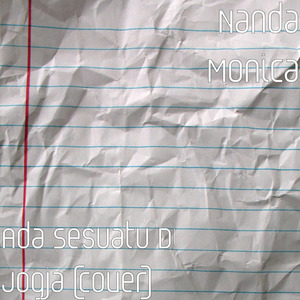 Nanda
Monica
Ada Sesuatu D
Jogja (cover)